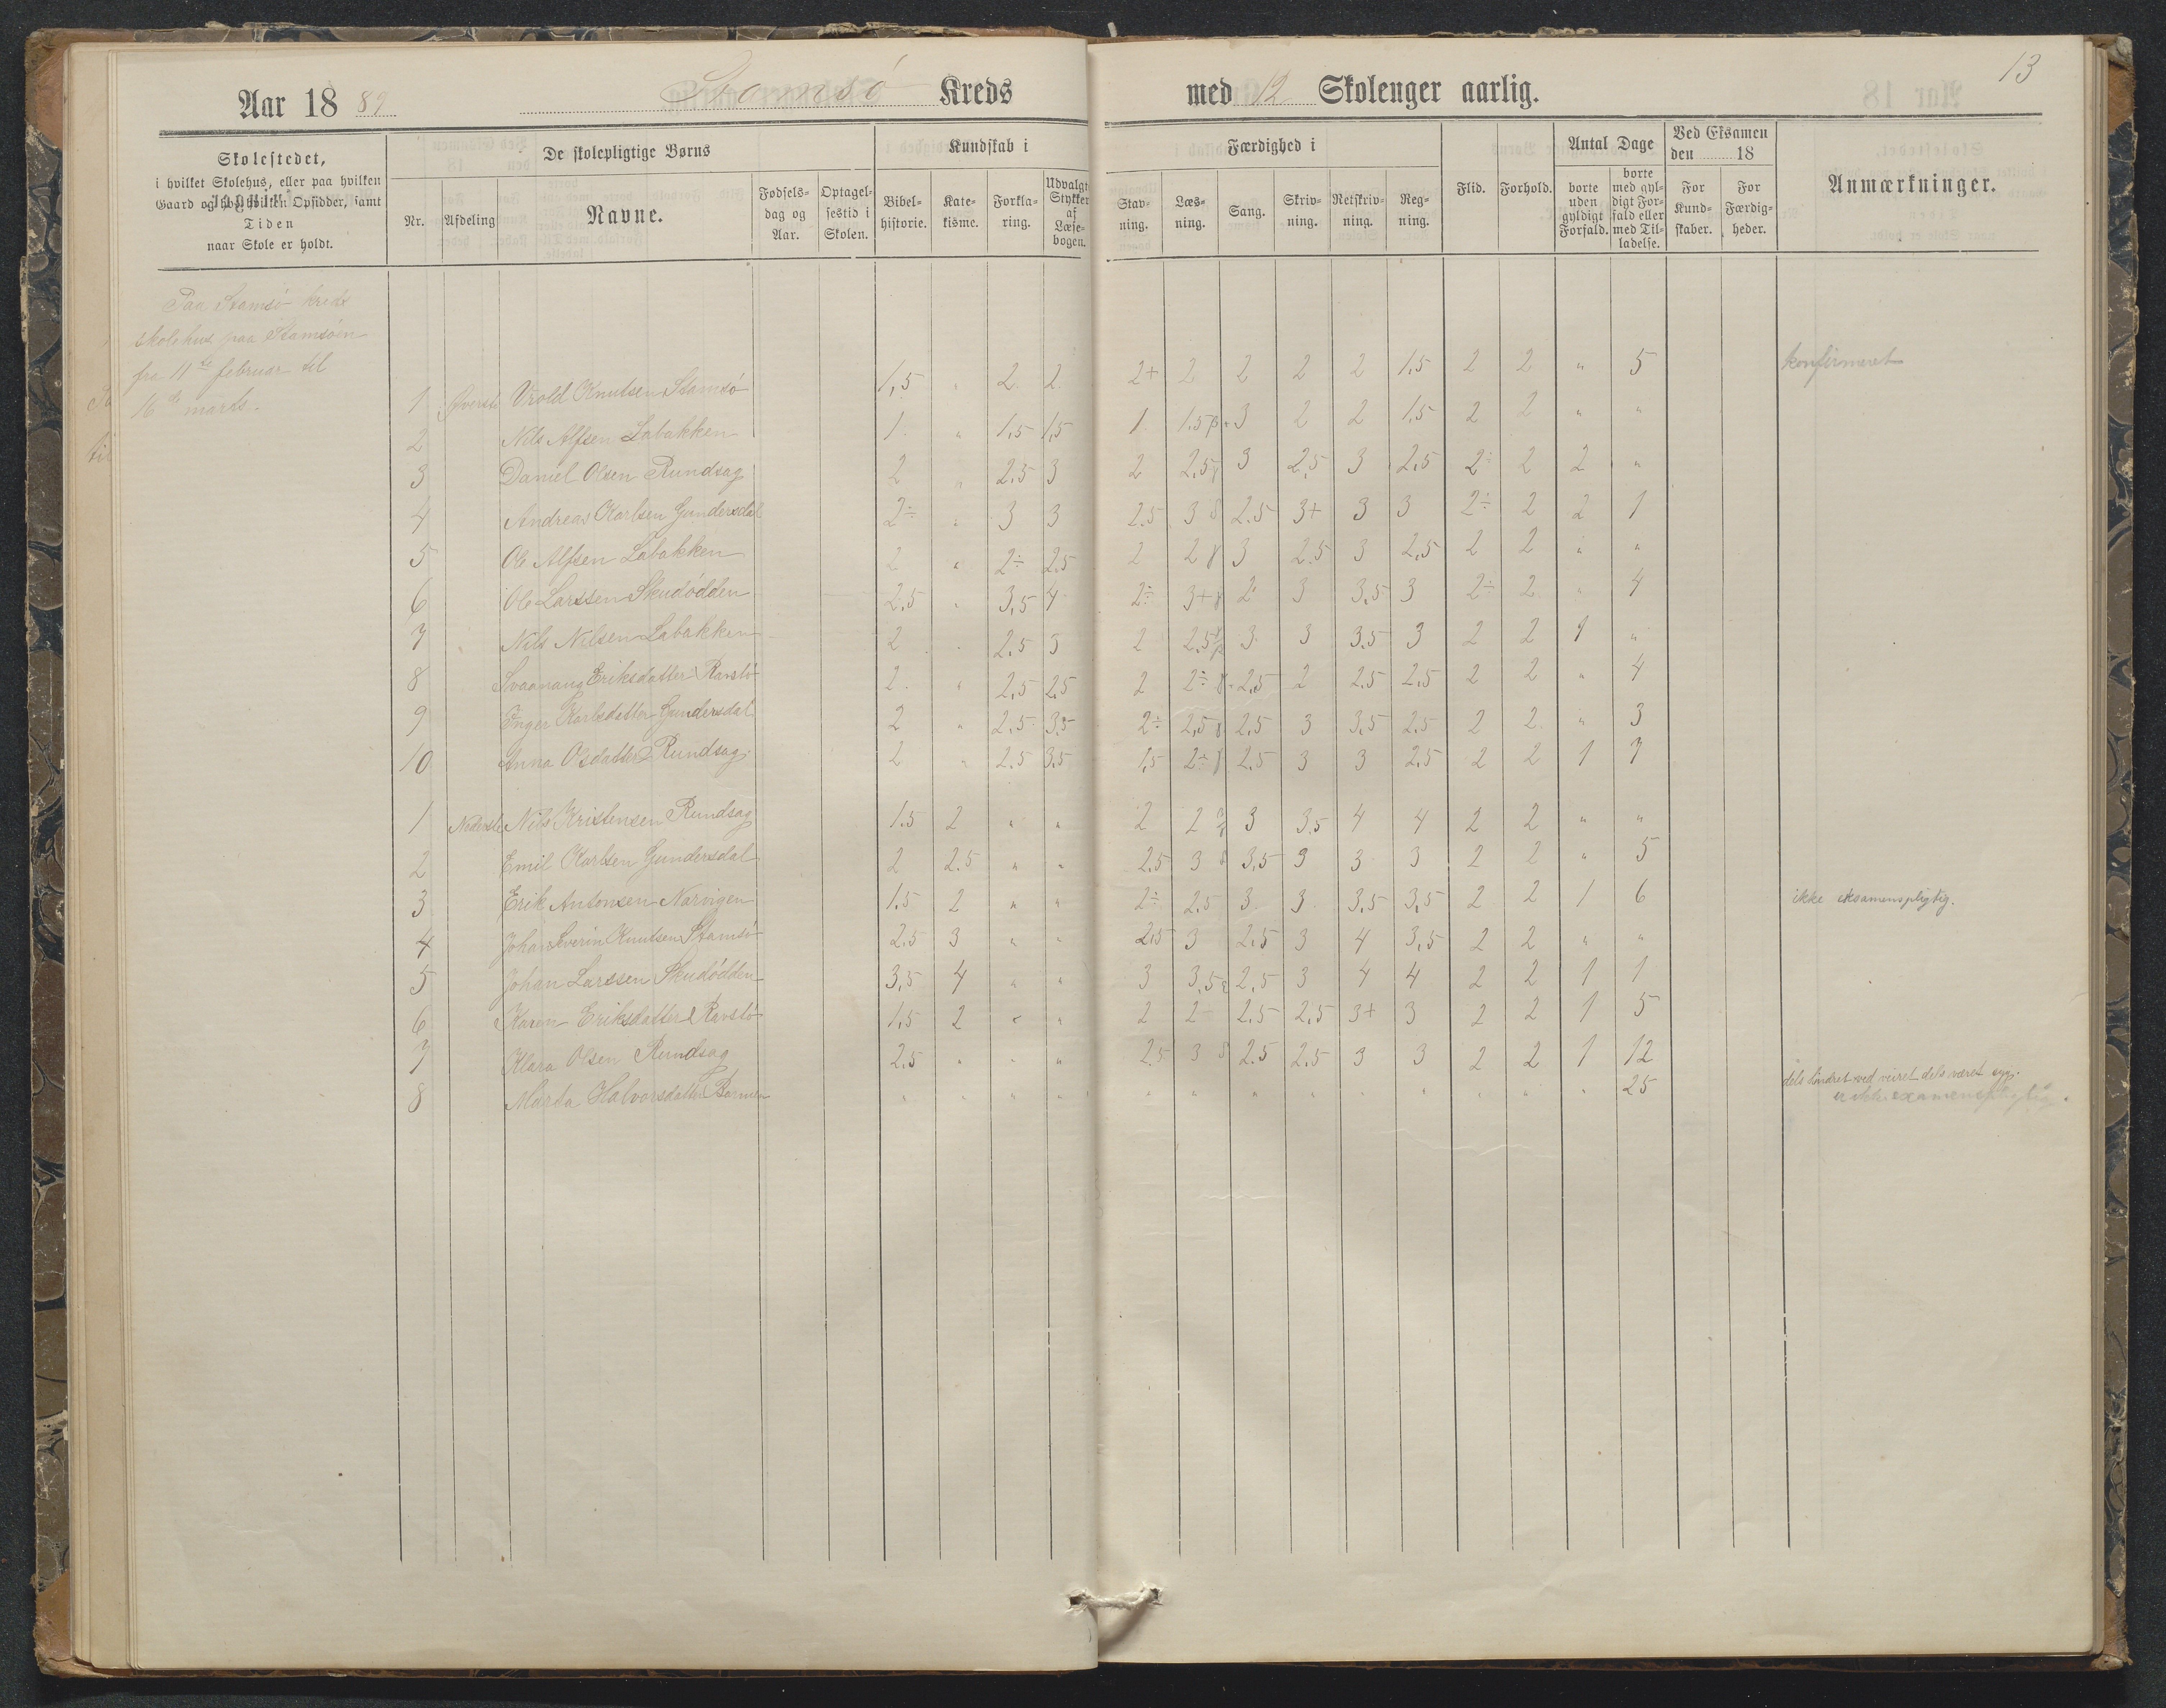 13
Aar 18 89 Stamsø Kreds med 12 Skolenger aarlig.
Skolestedet,
i hvilket Skolehus, eller paa hvilken
Gaard og hos hvilken Opsidder, samt
Tiden
naar Skole er holdt.
De skolepligtige Børns
Nr. Afdeling Navne. Fødselsdag og Aar. Optagelsestid i Skolen.
Kundskab i
Bibelhistorie. Katekisme. Forklaring. Udvalgt Stykker af Læsebogen.
Færdighed i
Stavning. Læsning. Sang. Skrivning. Retskrivning. Regning.
Flid. Forhold.
Antal Dage
borte uden gyldigt Forfald. borte med gyldigt Forfald eller med Tilladelse.
Ved Eksamen
den 18
For Kundskaber. For Færdigheder.
Anmærkninger.
Paa Stamsø kreds
skolehus paa Stamsøen
fra 11te februar til
16de marts.
1 Øverste Vrold Knutsen Stamsø 1,5 " 2 2 2+ 2 2 2 2 1,5 2 2 " 5 konfirmeret
2 Nils Alfsen Labakken 1 " 1,5 1,5 1 1.5 3 2 2 1,5 2 2 " "
3 Daniel Olsen Rundsag 2 " 2,5 3 2 2,5 3 2,5 3 2,5 2 2 2 "
4 Andreas Karlsen Gundersdal 2÷ " 3 3 2.5 3 2.5 3+ 3 3 2÷ 2 2 1
5 Ole Alfsen Labakken 2 " 2÷ 2.5 2 2 3 2.5 3 2,5 2 2 " "
6 Ole Larssen Skudødden 2,5 " 3,5 4 2÷ 3+ 2 3 3,5 3 2÷ 2 " 4
7 Nils Nilsen Labakken 2 " 2.5 3 2 2,5 3 3 3.5 3 2 2 1 "
8 Svaanaug Eriksdatter Ravstø 2 " 2,5 2,5 2 2÷ 2,5 2 2.5 2,5 2 2 " 4
9 Enger Karlsdatter Gundersdal 2 " 2.5 3.5 2÷ 2,5 2,5 3 3,5 2.5 2 2 " 3
10 Anna Olsdatter Rundsag 2 " 2.5 3.5 1,5 2÷ 2,5 3 3 2.5 2 2 1 7
1 Nederste Nils Kristensen Rundsag 1.5 2 " " 2 2 3 3,5 4 4 2 2 " "
2 Emil Karlsen Gundersdal 2 2.5 " " 2.5 3 3,5 3 3 3 2 2 " 5
3 Erik Antonsen Narvigen 1,5 2 " " 2÷ 2.5 3 3 3,5 3,5 2 2 1 6 ikke eksamenspligtig.
4 Johan Severin Knutsen Stamsø 2.5 3 " " 2,5 3 2,5 3 4 3,5 2 2 " "
5 Johan Larssen Skudødden 3,5 4 " " 3 3,5 2,5 3 4 4 2 2 1 1
6 Karen Eriksdatter Ravstø 1,5 2 " " 2 2 2,5 2,5 3+ 3 2 2 1 5
7 Klara Olsen Rundsag 2.5 " " " 2.5 3 2.5 2,5 3 3 2 2 1 12
8 Marta Halvorsdatter " " " " " " " " " " " " " 25 dels hindret ved veiret dels været syg.
er ikke examenspligtig.